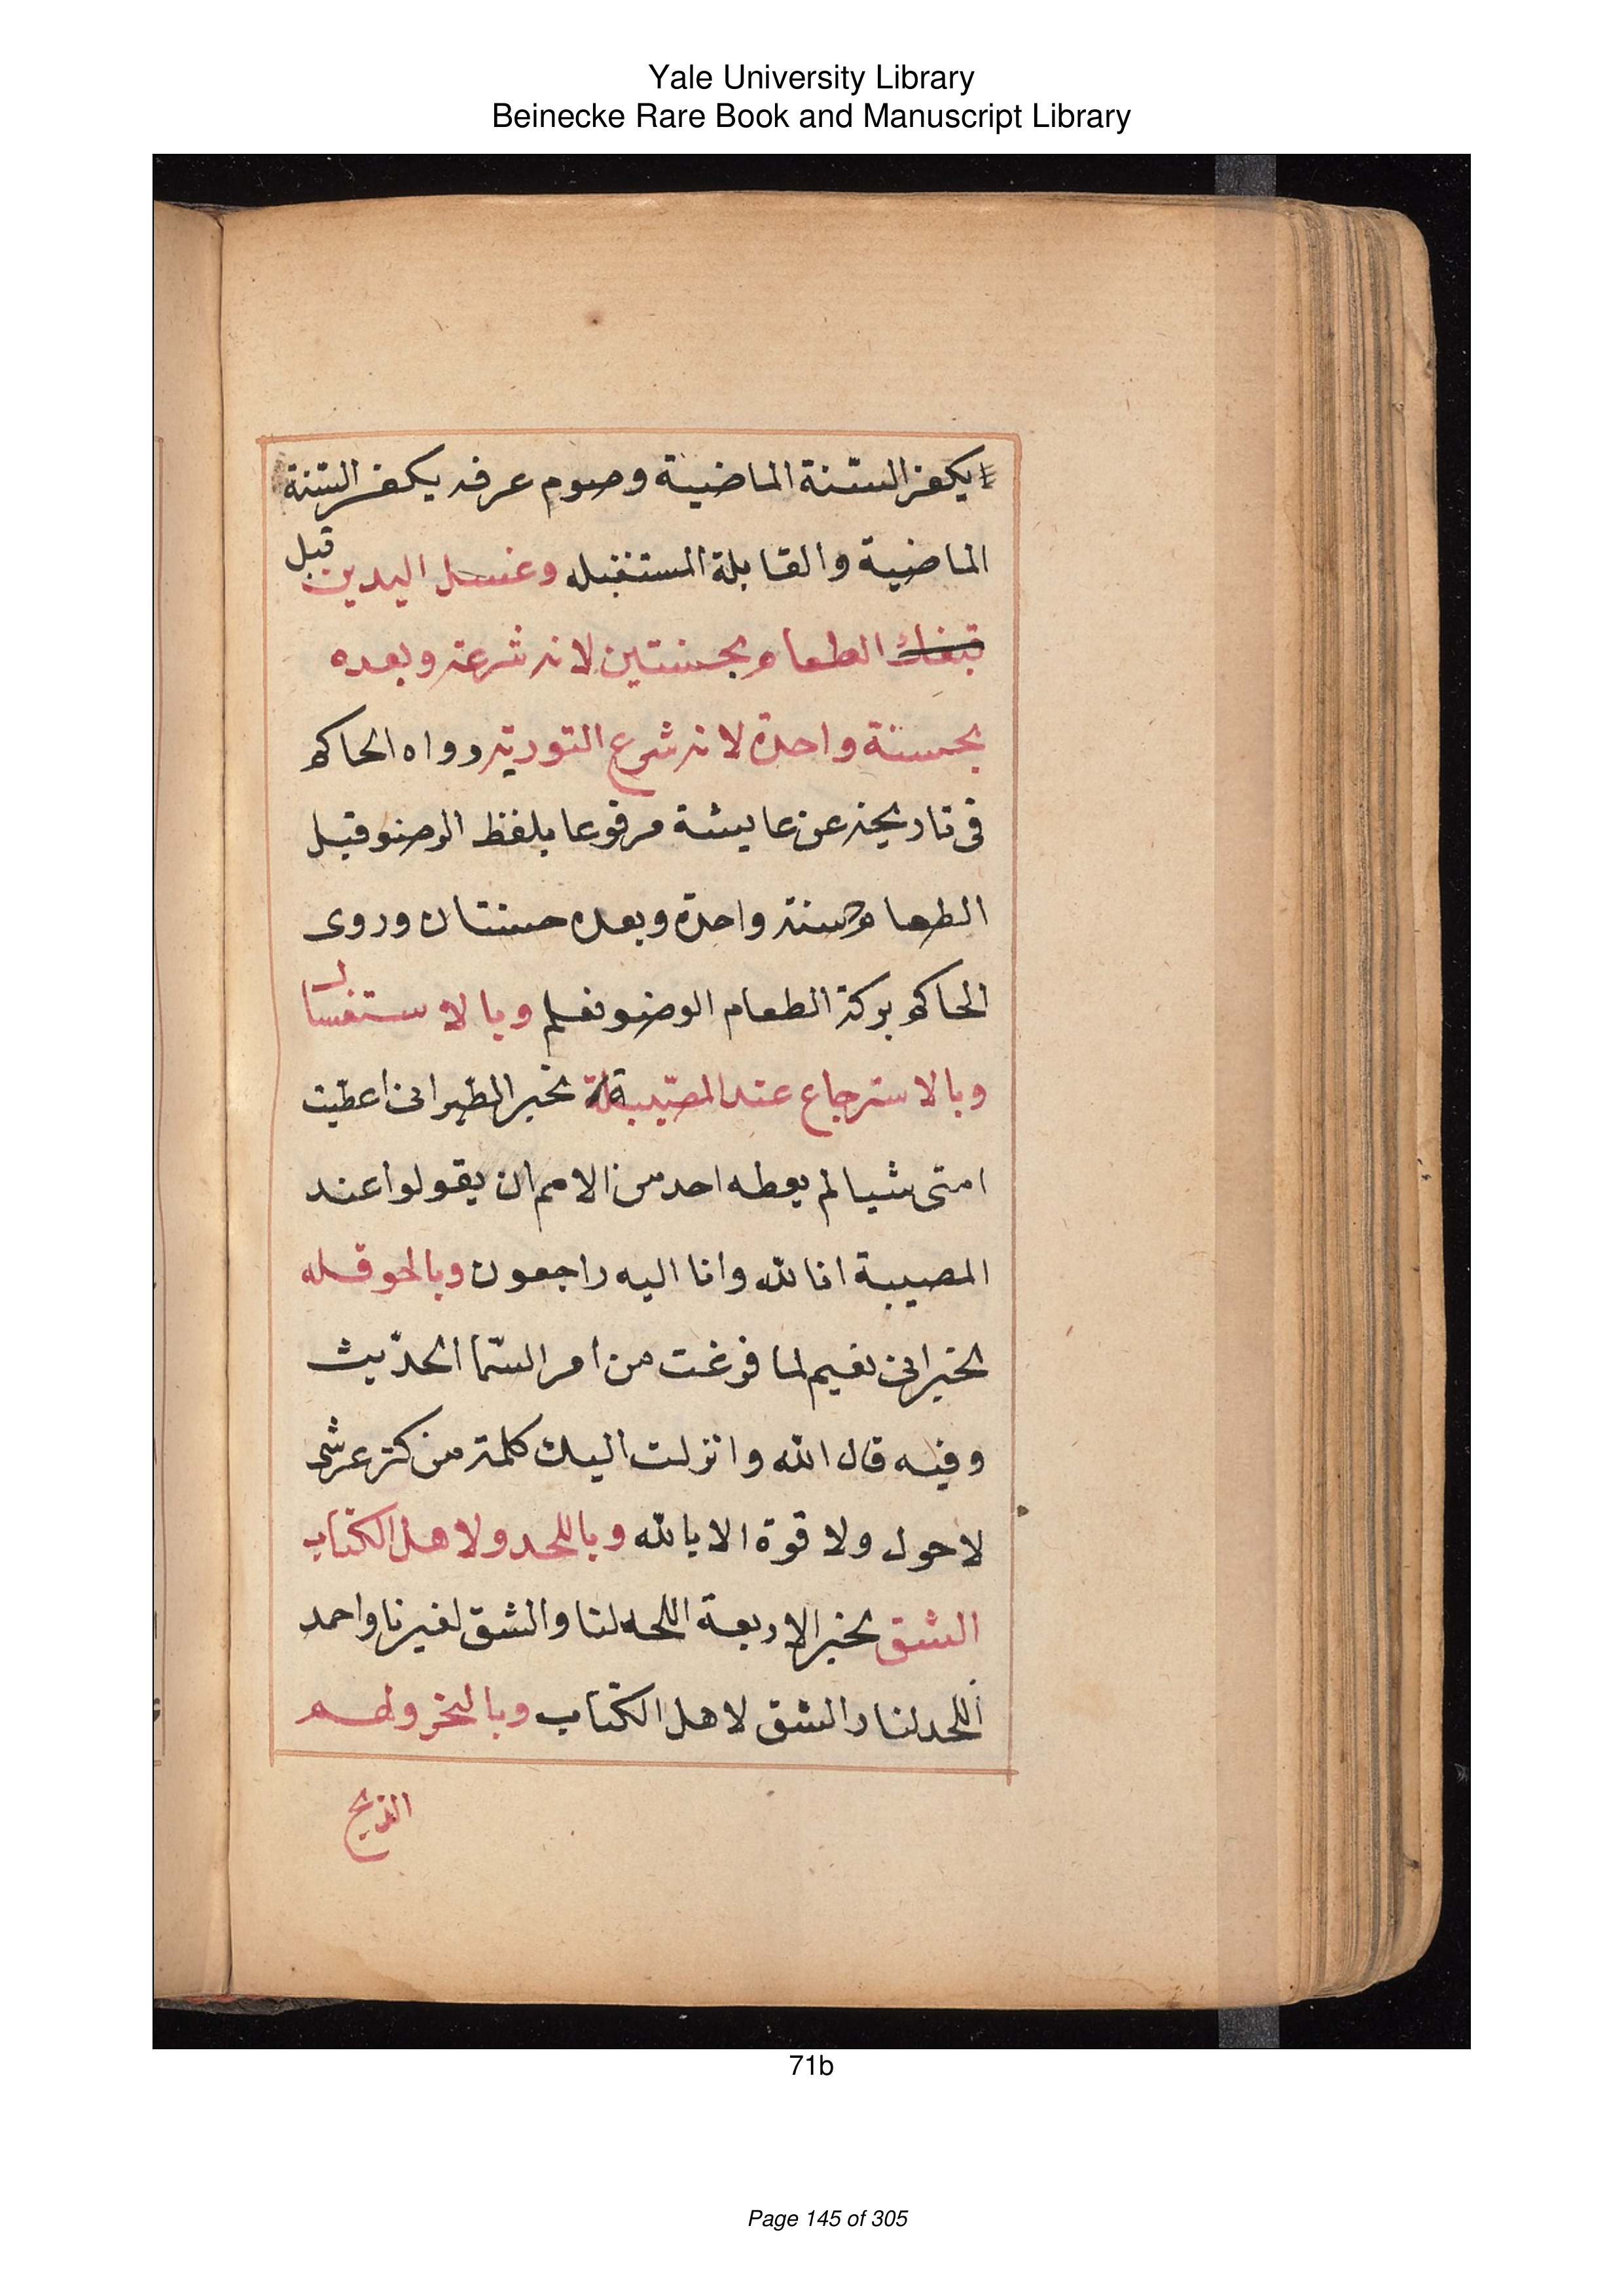 Yale University Library
Beinecke Rare Book and Manuscript Library
يكفر السّنة الماضية وصوم عرفه يكفر السّنة
الماضية والقابلة المستقبله وغسل اليدين قبل
الطعام بحسنتين لانه شرعته وبعده
بحسنة واحدة لانه شرع التورية رواه الحاكم
فى تاريخه عن عايشة مرفوعا بلفظ الوضو قبل
الطعام حسنة واحدة وبعده حسنتان وروى
الحاكم بركة الطعام الوضو نعلم وبالاستغسال
وبالاسترجاع عند المصيبة بخبر الطبرانى اعطيت
امتى شيا لم يعطه احد من الامم ان يقولوا عند
المصيبة انا لله وانا اليه راجعون وبالحوقله
لخبر ابى نعيم لما فرغت من امر السّما الحديث
وفيه قال الله وانزلت اليك كلمة من كنز عرشى
لا حول ولا قوة الا بالله وباللحد ولاهل الكتاب
الشق بخبر الاربعة اللحد لنا والشق لغيرنا واحمد
اللحد لنا والشق لاهل الكتاب وبالنحر ولهم
الذبح
71b
Page 145 of 305